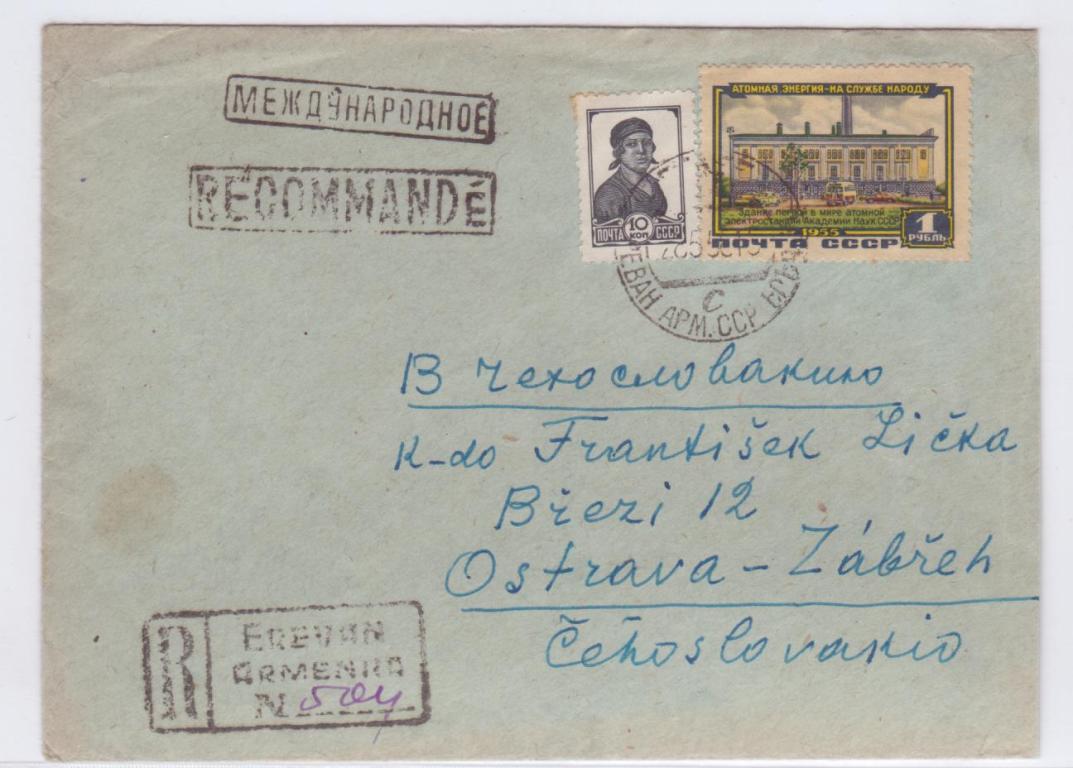 МЕЖДУНАРОДНОЕ
RECOMMANDÉ
10 КОП
ПОЧТА СССР
АТОМНАЯ ЭНЕРГИЯ-НА СЛУЖБЕ НАРОДУ
Здание первой в мире атомной
электростанции Академии Наук СССР
1955
ПОЧТА СССР
1 РУБЛЬ
С
ЕВАН АРМ. ССР
В Чехословакию
K-do František Lička
Březi 12
Ostrava - Zábřeh
Čehoslovakio
R
EREVAN
ARMENHA
N 504